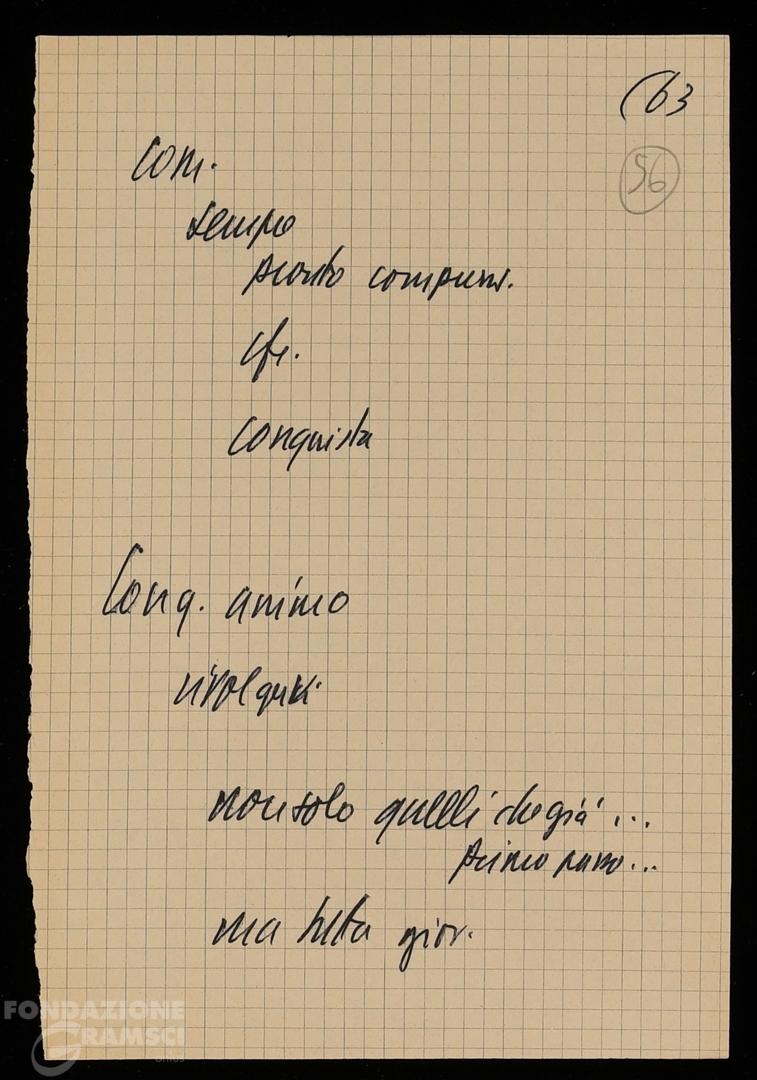 (63
56
com.
tempo
pronto comprens.
cfr.
conquista
Conq. animo
rivolgersi
non solo quelli che già ...
primo passo...
ma tutta giov.
FONDAZIONE
GRAMSCI
onlus